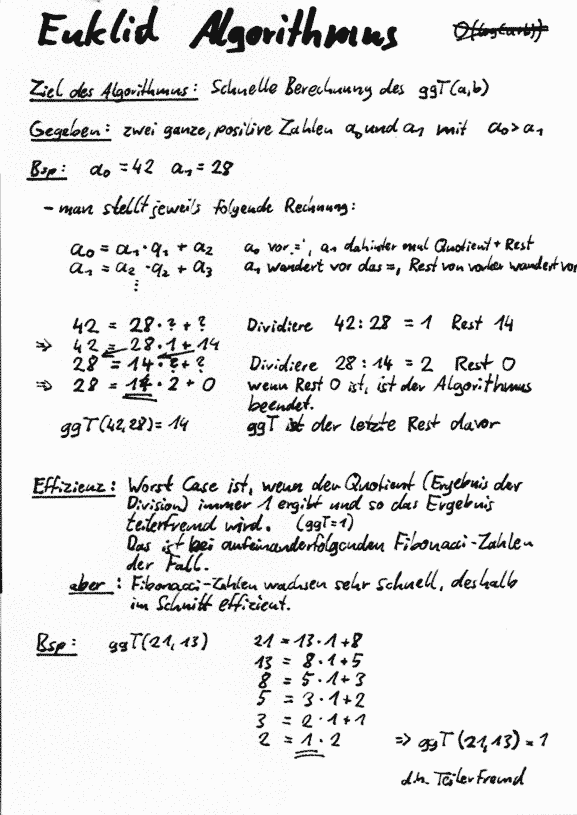 Euklid Algorithmus O(log(a+b))
Ziel des Algorithmus: Schnelle Berechnung des ggT(a,b)
Gegeben: zwei ganze, positive Zahlen a₀ und a₁ mit a₀ > a₁
Bsp: a₀ = 42 a₁ = 28
- man stellt jeweils folgende Rechnung:
a₀ = a₁ · q₁ + a₂ a₀ vor '=', a₁ dahinter mal Quotient + Rest
a₁ = a₂ · q₂ + a₃ a₁ wandert vor das =, Rest von vorher wandert vor
⋮
42 = 28 · ? + ? Dividiere 42 : 28 = 1 Rest 14
⇒ 42 = 28 · 1 + 14
28 = 14 · ? + ? Dividiere 28 : 14 = 2 Rest 0
⇒ 28 = 14 · 2 + 0 wenn Rest 0 ist, ist der Algorithmus
beendet.
ggT(42,28) = 14 ggT ist der letzte Rest davor
Effizienz: Worst Case ist, wenn der Quotient (Ergebnis der
Division) immer 1 ergibt und so das Ergebnis
teilerfremd wird. (ggT=1)
Das ist bei aufeinanderfolgenden Fibonacci-Zahlen
der Fall.
aber: Fibonacci-Zahlen wachsen sehr schnell, deshalb
im Schnitt effizient.
Bsp: ggT(21,13) 21 = 13 · 1 + 8
13 = 8 · 1 + 5
8 = 5 · 1 + 3
5 = 3 · 1 + 2
3 = 2 · 1 + 1
2 = 1 · 2 ⇒ ggT(21,13) = 1
d.h. Teilerfremd